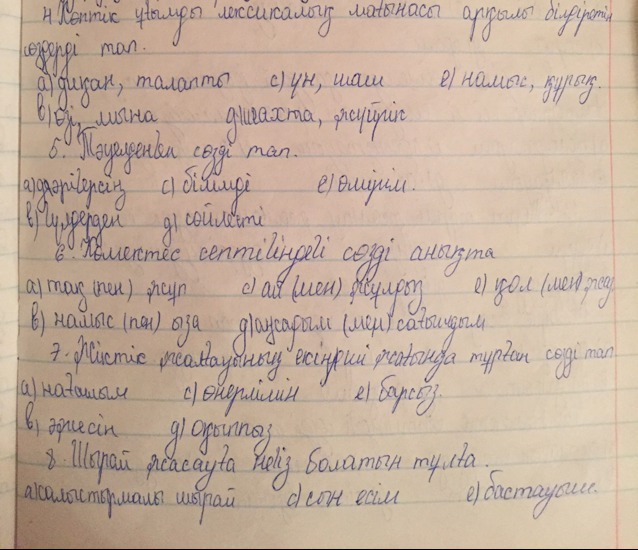 4. Көптік ұғымды лексикалық мағынасы арқылы білдіретін
сөздерді тап.
а) диқан, талапты с) ұн, шаш е) намыс, құрық.
в) өзі, мына д) шахта, жүйрік
5. Тәуелденген сөзді тап.
а) дәрігерсің с) білімді е) өмірім.
в) гүлдерден д) сөйлесті
6. Көмектес септігіндегі сөзді анықта
а) тақ (пен) жұп с) ай (мен) жұлдыз е) қол (мен) жаз
в) намыс (пен) ыза д) аңсадым (мен) сағындым
7. Жіктік жалғауының екінші жағында тұрған сөзді тап
а) нағашым с) өнерлімін е) барсыз.
в) әжесін д) оқыппыз
8. Шырай жасауға негіз болатын тұлға.
а) салыстырмалы шырай с) сын есім е) бастауыш.